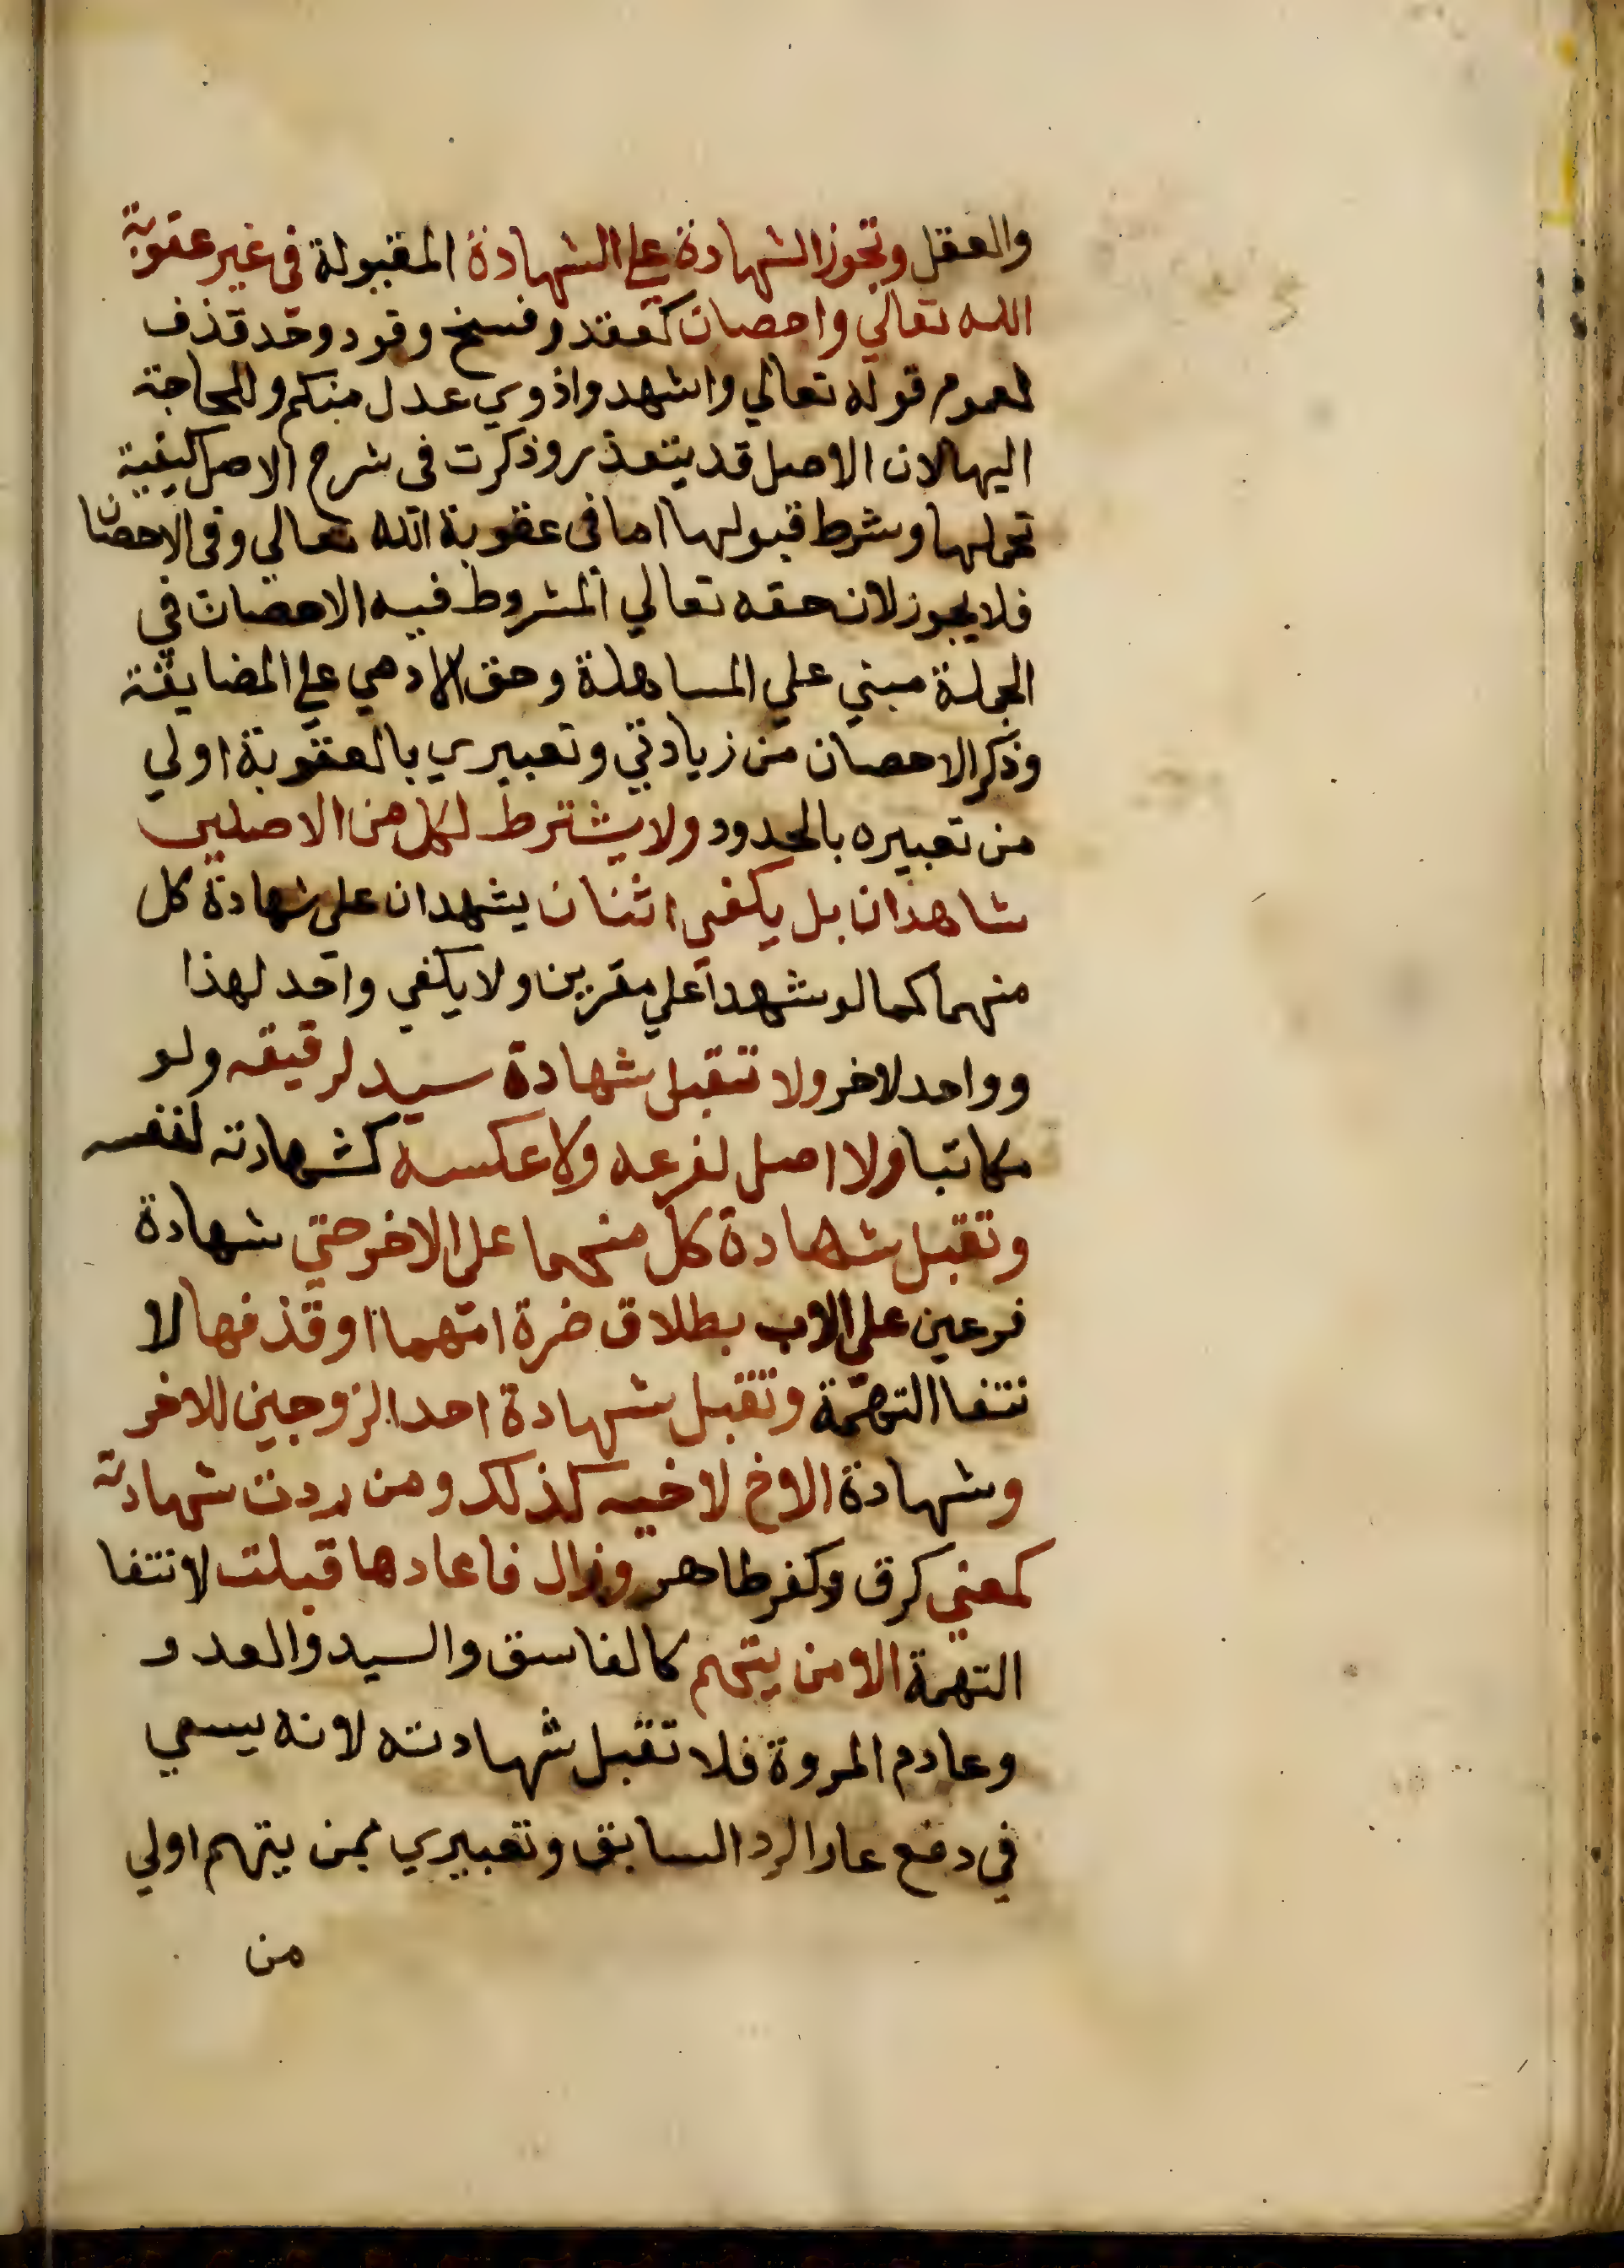 والعقل وتجوز الشهادة على الشهادة المقبولة في غير عقوبة
الله تعالي واحصان كعقد وفسخ وقود وحد قذف
لعموم قوله تعالي واشهدوا ذوي عدل منكم وللحاجة
اليها لان الاصل قد يتعذر وذكرت في شرح الاصل كيفية
تحملها وشرط قبولها اما في عقوبة الله تعالي وفي الاحصان
فلا يجوز لان حقه تعالي المشروط فيه الاحصان في
الجملة مبني علي المساهلة وحق الادمي علي المضايقة
وذكر الاحصان من زيادتي وتعبيري بالعقوبة اولي
من تعبيره بالحدود ولا يشترط لكل من الاصلين
شاهدان بل يكفي اثنان يشهدان علي شهادة كل
منهما كما لو شهدا علي مقرين ولا يكفي واحد لهذا
وواحد لاخر ولا تقبل شهادة سيد لرقيقه ولو
مكاتبا ولا اصل لفرعه ولا عكسه كشهادته لنفسه
وتقبل شهادة كل منهما علي الاخر حتي شهادة
فرعين علي الاب بطلاق ضرة امهما او قذفها لا
نتفا التهمة وتقبل شهادة احد الزوجين للاخر
وشهادة الاخ لاخيه كذلك ومن ردت شهادته
لمعني كرق وكفر ظاهر وزال فاعادها قبلت لانتفا
التهمة الا من يتهم كالفاسق والسيد والعدو
وعادم المروة فلا تقبل شهادته لانه يسعي
في دفع عار الرد السابق وتعبيري بمن يتهم اولي
من